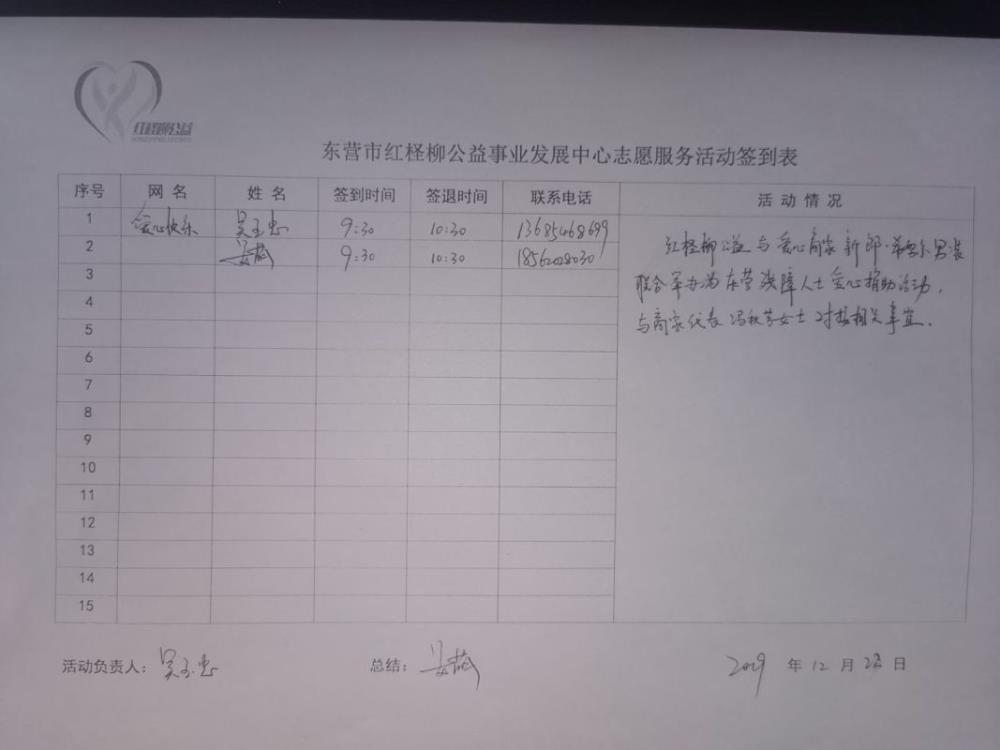 红柽柳公益
东营市红柽柳公益事业发展中心志愿服务活动签到表
序号 网名 姓名 签到时间 签退时间 联系电话 活动情况
1 爱心快乐 吴玉忠 9:30 10:30 13685468699
2 9:30 10:30 18562008030
红柽柳公益与爱心商家新郎·希努尔男装
联合举办为东营残障人士爱心捐助活动,
与商家代表冯秋芳女士对接相关事宜.
3
4
5
6
7
8
9
10
11
12
13
14
15
活动负责人: 吴玉忠 总结: 2019年12月28日